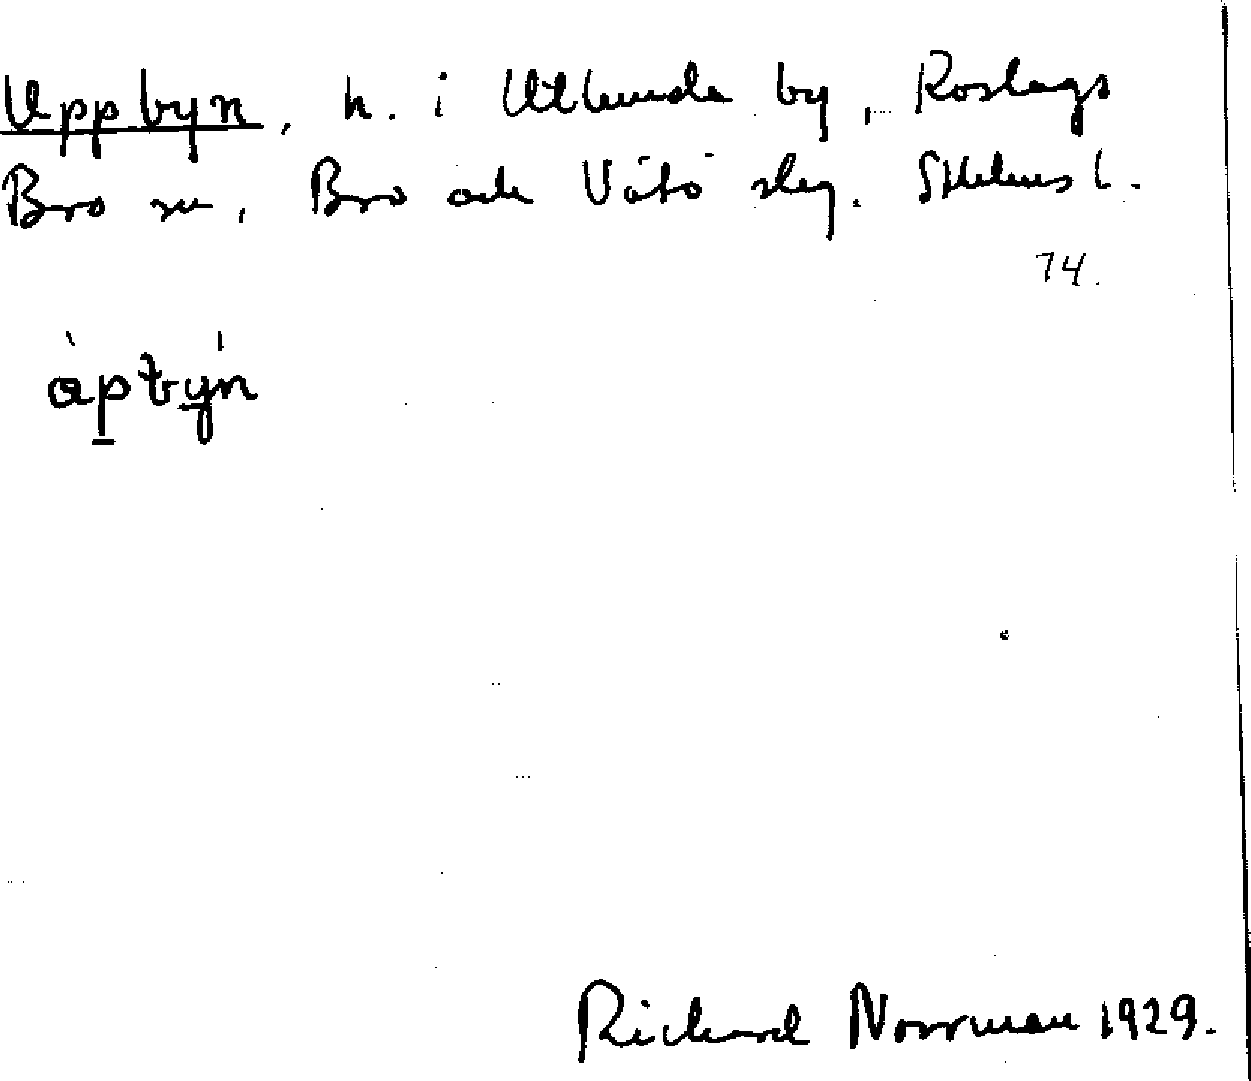 Uppbyn, h. i Utlunda by, Roslags
Bro sn, Bro och Vätö skg. Sthlms l.
74.
Rickard Norrman 1929.